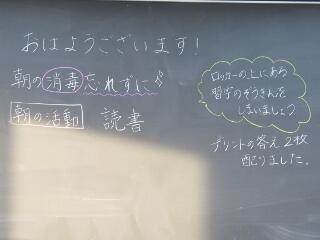 おはようございます!
朝の消毒忘れずに
朝の活動 読書
ロッカーの上にある
習字のぞうきんを
しまいましょう
プリントの答え2枚
配りました。